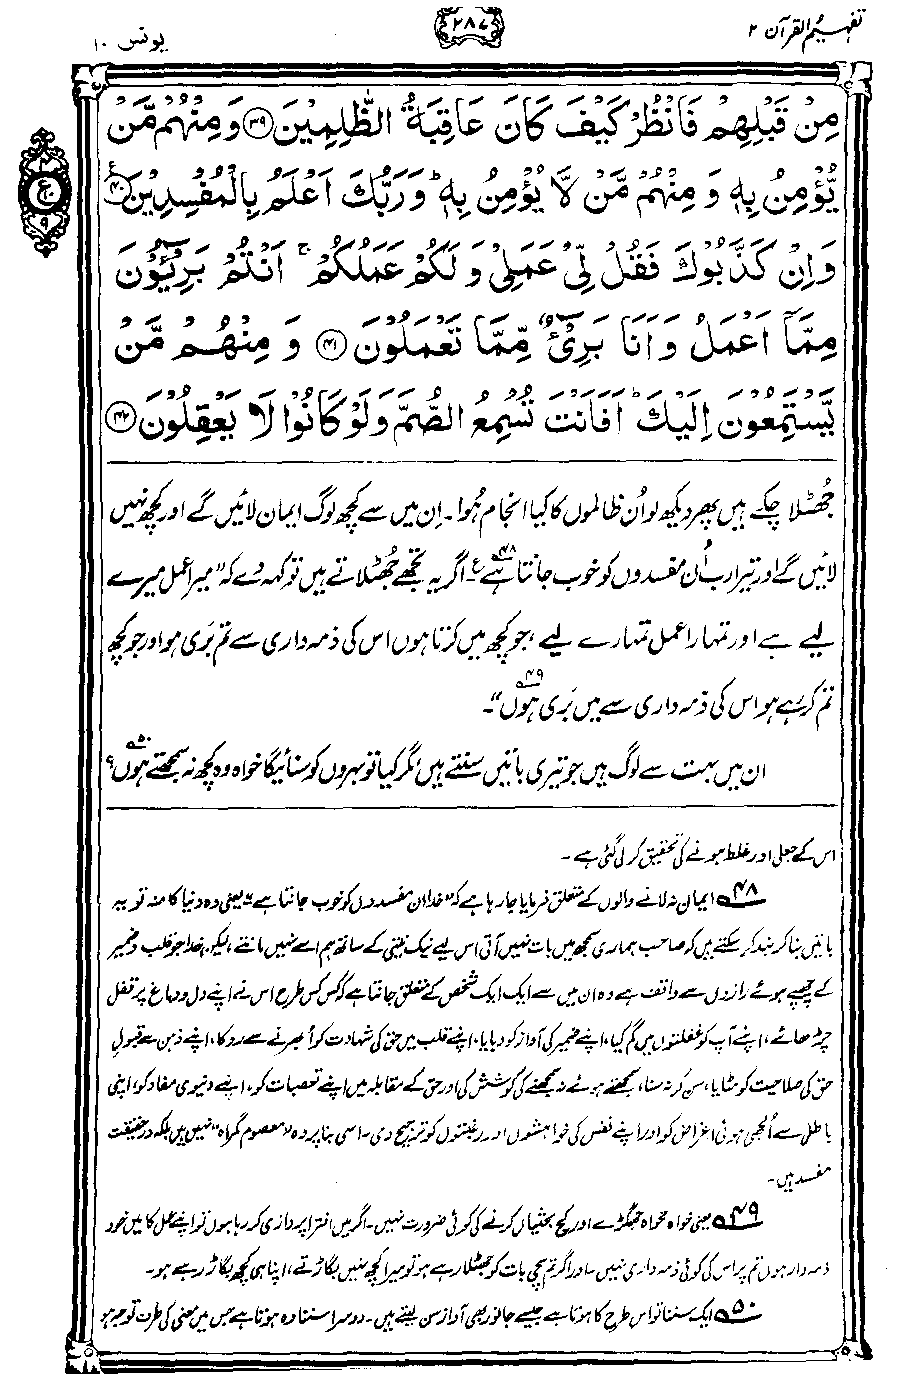 تفہیم القرآن ۲
۲۸۷
یونس ۱۰
مِنْ قَبْلِهِمْ فَانْظُرْ كَيْفَ كَانَ عَاقِبَةُ الظّٰلِمِيْنَ ﴿۳۹﴾ وَمِنْهُمْ مَّنْ
يُّؤْمِنُ بِهٖ وَ مِنْهُمْ مَّنْ لَّا يُؤْمِنُ بِهٖ ؕ وَرَبُّكَ اَعْلَمُ بِالْمُفْسِدِيْنَ ﴿۴۰﴾ ع
وَاِنْ كَذَّبُوْكَ فَقُلْ لِّيْ عَمَلِيْ وَ لَكُمْ عَمَلُكُمْ ۚ اَنْتُمْ بَرِيْٓـُٔوْنَ
مِمَّاۤ اَعْمَلُ وَ اَنَا بَرِيْٓءٌ مِّمَّا تَعْمَلُوْنَ ﴿۴۱﴾ وَ مِنْهُمْ مَّنْ
يَّسْتَمِعُوْنَ اِلَيْكَ ؕ اَفَاَنْتَ تُسْمِعُ الصُّمَّ وَلَوْ كَانُوْا لَا يَعْقِلُوْنَ ﴿۴۲﴾
جُھٹلا چکے ہیں پھر دیکھ لو اُن ظالموں کا کیا انجام ہُوا۔ اِن میں سے کچھ لوگ ایمان لائیں گے اور کچھ نہیں
لائیں گے اور تیرا رب اُن مفسدوں کو خوب جانتا ہے۴۸؎ ع اگر یہ تجھے جُھٹلاتے ہیں تو کہہ دے کہ ”میرا عمل میرے
لیے ہے اور تمہارا عمل تمہارے لیے، جو کچھ میں کرتا ہوں اس کی ذمہ داری سے تم بَری ہو اور جو کچھ
تم کر رہے ہو اس کی ذمہ داری سے میں بَری ہُوں۴۹؎“۔
ان میں بہت سے لوگ ہیں جو تیری باتیں سنتے ہیں، مگر کیا تو بہروں کو سنائیگا خواہ وہ کچھ نہ سمجھتے ہوں۵۰؎؟
اس کے جعلی اور غلط ہونے کی تحقیق کر لی گئی ہے۔
۴۸؎ ایمان نہ لانے والوں کے متعلق فرمایا جا رہا ہے کہ ”خدا ان مفسدوں کو خوب جانتا ہے“ یعنی وہ دنیا کا منہ تو یہ
باتیں بنا کر بند کر سکتے ہیں کہ صاحب ہماری سمجھ میں بات نہیں آتی اس لیے نیک نیتی کے ساتھ ہم اسے نہیں مانتے، لیکن خدا جو قلب و ضمیر
کے چھپے ہوئے رازوں سے واقف ہے وہ ان میں سے ایک ایک شخص کے متعلق جانتا ہے کہ کس کس طرح اس نے اپنے دل و دماغ پر قفل
چڑھائے، اپنے آپ کو غفلتوں میں گم کیا، اپنے ضمیر کی آواز کو دبایا، اپنے قلب میں حق کی شہادت کو اُبھرنے سے روکا، اپنے ذہن سے قبولِ
حق کی صلاحیت کو مٹایا، سن کر نہ سنا، سمجھتے ہوئے نہ سمجھنے کی کوشش کی اور حق کے مقابلہ میں اپنے تعصبات کو، اپنے دنیوی مفاد کو، اپنی
باطل سے اُلجھی ہوئی اغراض کو اور اپنے نفس کی خواہشوں اور رغبتوں کو ترجیح دی۔ اسی بنا پر وہ ”معصوم گمراہ“ نہیں ہیں بلکہ درحقیقت
مفسد ہیں۔
۴۹؎ یعنی خواہ مخواہ جھگڑے اور کج بحثیاں کرنے کی کوئی ضرورت نہیں۔ اگر میں افترا پردازی کر رہا ہوں تو اپنے عمل کا میں خود
ذمہ دار ہوں تم پر اس کی کوئی ذمہ داری نہیں۔ اور اگر تم سچی بات کو جھٹلا رہے ہو تو میرا کچھ نہیں بگاڑتے، اپنا ہی کچھ بگاڑ رہے ہو۔
۵۰؎ ایک سننا تو اس طرح کا ہوتا ہے جیسے جانور بھی آواز سن لیتے ہیں۔ دوسرا سننا وہ ہوتا ہے جس میں معنی کی طرف توجہ ہو